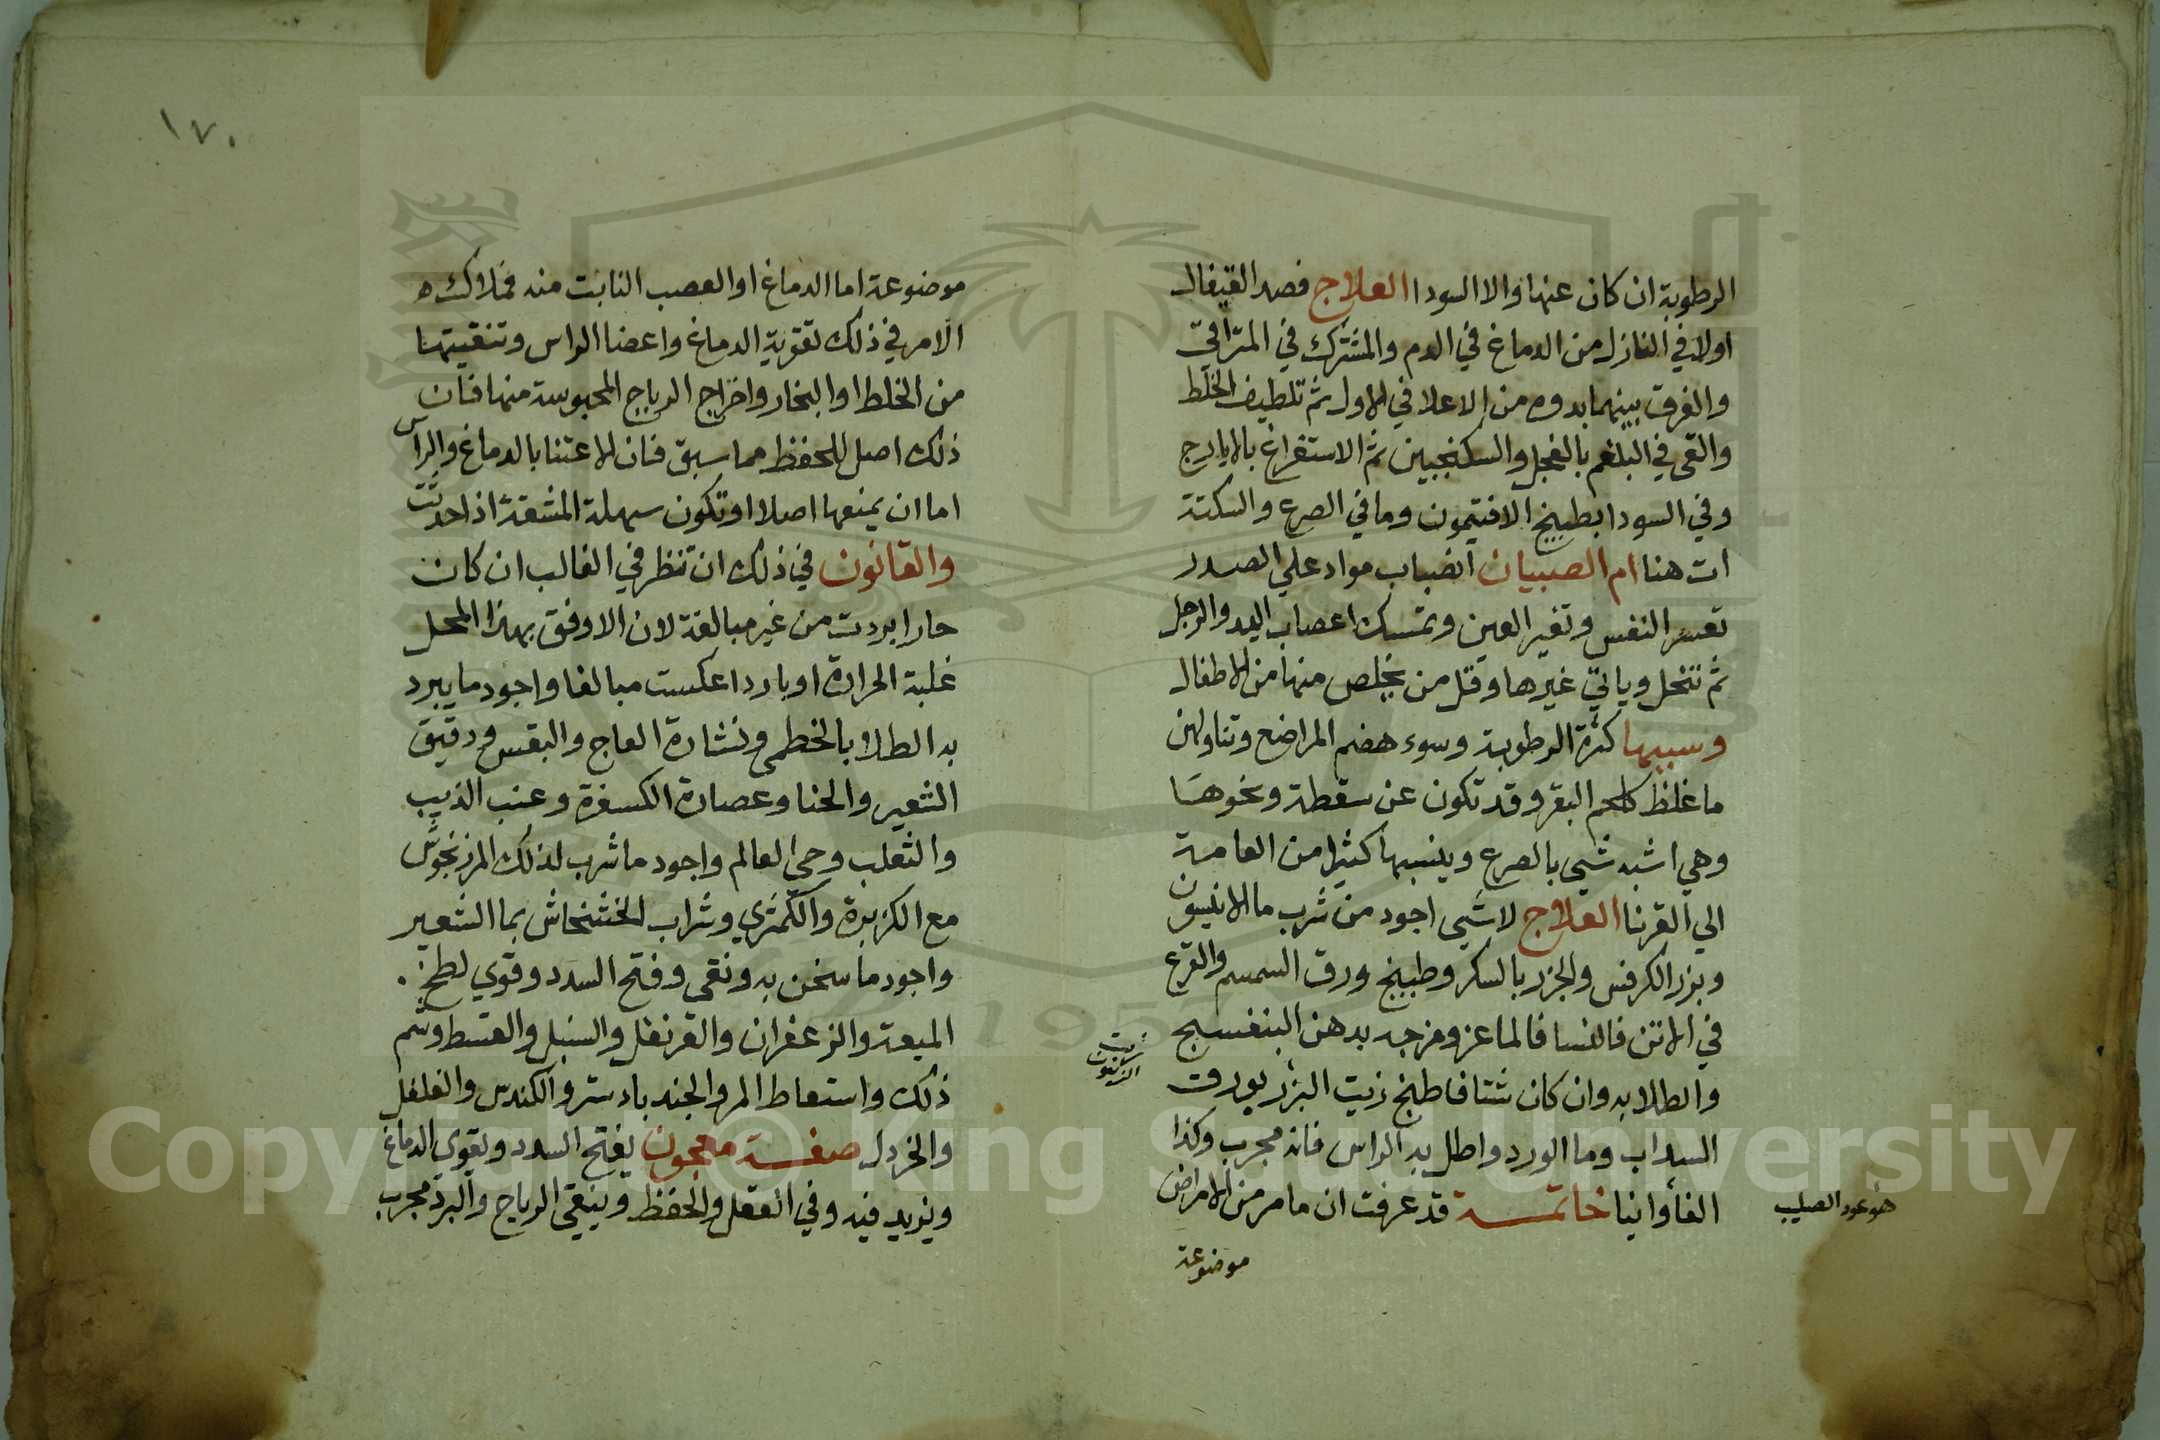 الرطوبة ان كان عنها والا السودا العلاج فصد القيفال
اولا في النازل من الدماغ في الدم والمشترك في المترافي
والفرق بينهما بدوه من الاعلا في الاول ثم تلطيف الخلط
والقي في البلغم بالفجل والسكنجبين ثم الاستفراغ بالايارج
وفي السودا بطبيخ الافتيمون وما في الصرع والسكتة
ات هنا ام الصبيان انضباب مواد علي الصدر
تعسر النفس وتغير العين وتمسك اعصاب اليد والرجل
ثم تنحل وياتي غيرها وقل من يخلص منها من الاطفال
وسببها كثرة الرطوبة وسوء هضم المراضع وتناولهن
ما غلظ كلحم البقر وقد تكون عن سقطة ونحوها
وهي اشبه شي بالصرع وينسبها كثيرا من العامة
الي القرنا العلاج لا شي اجود من شرب ما الانيسون
وبزر الكرفس والجزر بالسكر وطبيخ ورق السمسم والقرع
في الاتن فالنسا فالماعز ومزجه بدهن البنفسج
والطلا به وان كان شتا فاطبخ زيت البزر بورق
السداب وما الورد واطل به الراس فانه مجرب وكذا
الفاوانيا خاتمة قد عرفت ان ما مر من الامراض
موضوعة
زيت الزيتون
هو عود الصليب
١٧٠
موضوعة اما الدماغ او العصب النابت منه فملاك
الامر في ذلك تقوية الدماغ واعضا الراس وتنقيتها
من الخلط او البخار واخراج الرياح المحبوسة منها فان
ذلك اصل للحفظ مما سبق فان الاعتنا بالدماغ والراس
اما ان يمنعها اصلا او تكون سهلة المشقة اذا حدثت
والقانون في ذلك ان تنظر في الغالب ان كان
حارا بردت من غير مبالغة لان الاوفق بهذا المحل
غلبة الحرارة او باردا عكست مبالغا واجود ما يبرد
به الطلا بالخطمي ونشارة العاج والبقس ودقيق
الشعير والحنا وعصارة الكسفرة وعنب الذيب
والثعلب وحي العالم واجود ما شرب لذلك المرزنجوش
مع الكزبرة والكمثري وشراب الخشخاش بما الشعير
واجود ما سخن به ونقي وفتح السدد وقوي لطخ
الميعة والزعفران والقرنفل والسنبل والقسط وشم
ذلك واستعاط المر والجندبادستر والكندس والفلفل
والخردل صفة معجون يفتح السدد ويقوي الدماغ
ويزيد فيه وفي العقل والحفظ وينقي الرياح والبرد مجرب